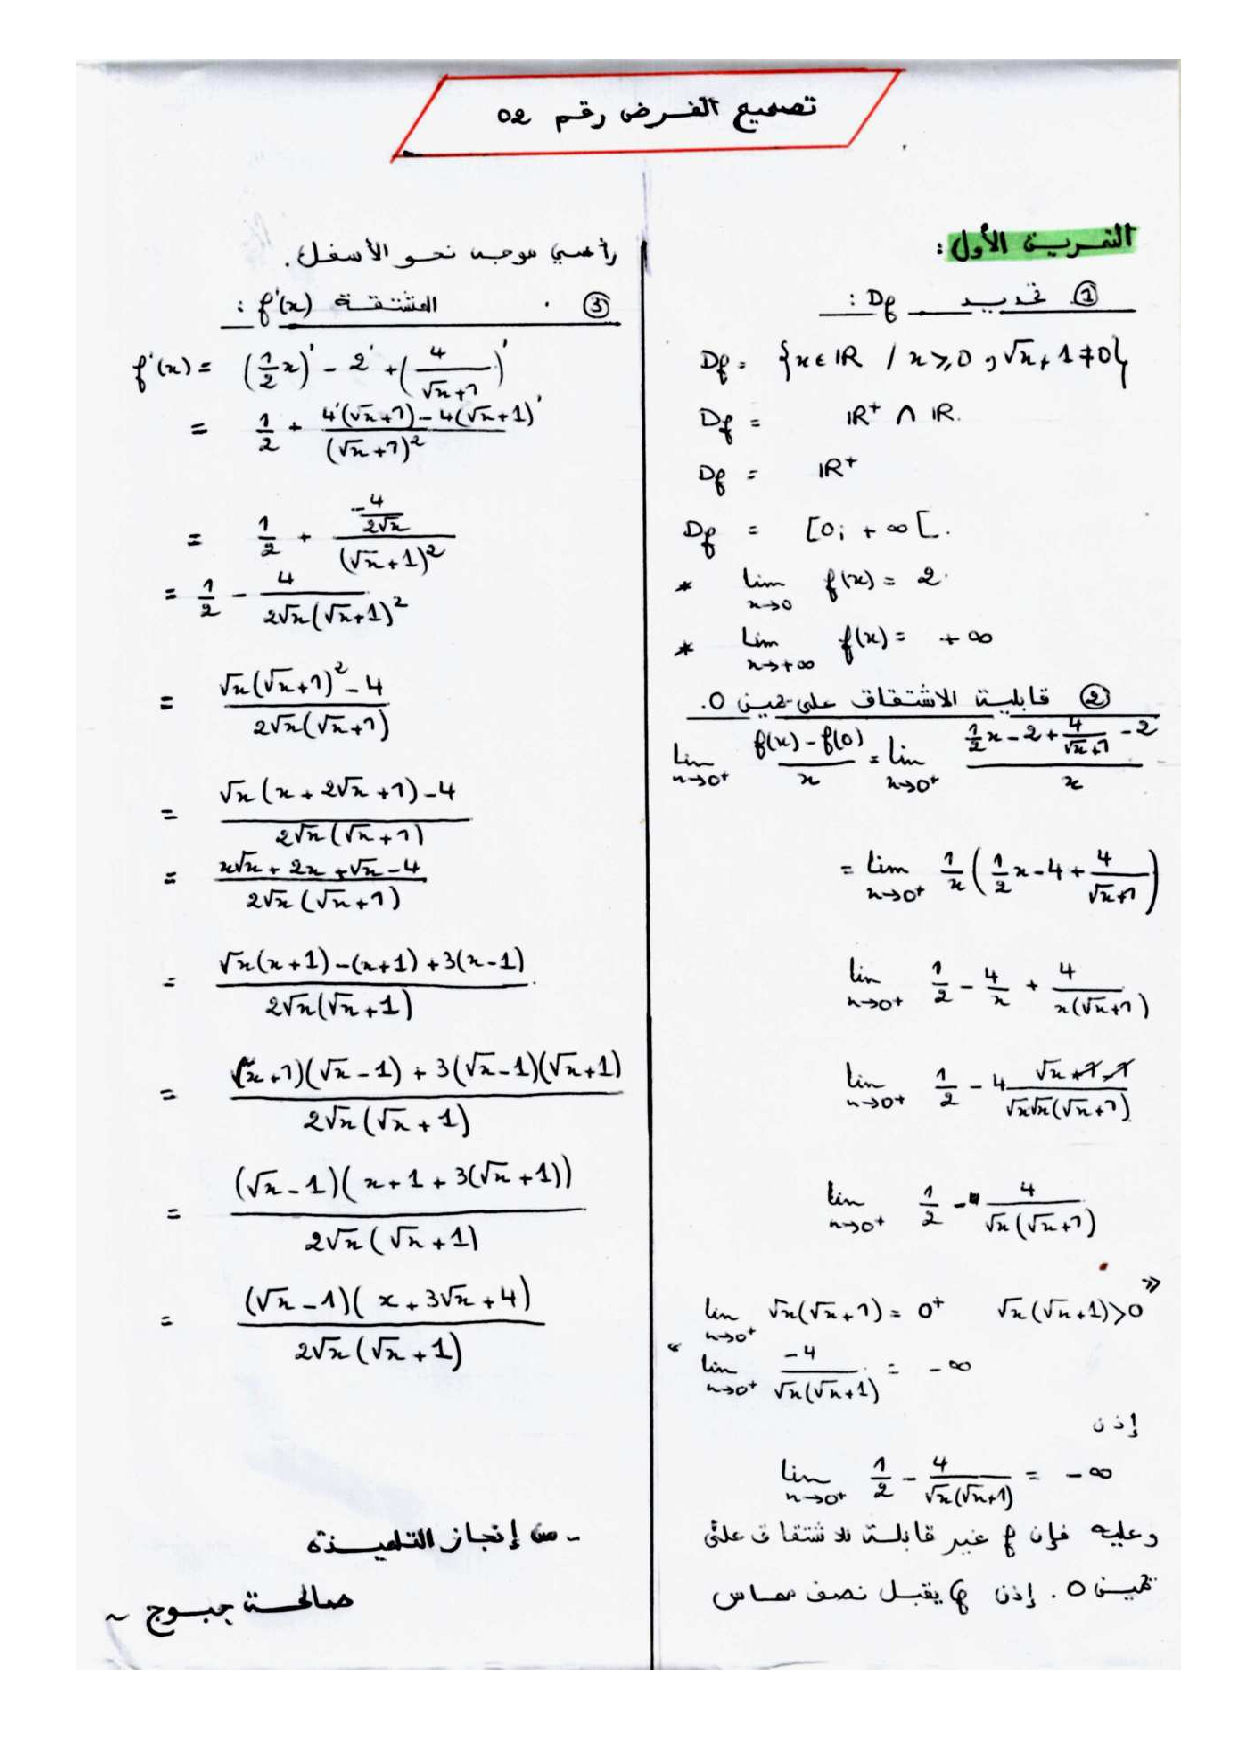 تصحيح الفرض رقم 02
التمرين الأول :
① تحديد Df :
Df = {x ∈ IR / x ⩾ 0 و √x + 1 ≠ 0}
Df = IR⁺ ∩ IR.
Df = IR⁺
Df = [0; +∞[.
* lim x→0 f(x) = 2.
* lim x→+∞ f(x) = +∞
② قابلية الاشتقاق على يمين 0.
lim x→0⁺ (f(x) - f(0))/x = lim x→0⁺ (1/2 x - 2 + 4/(√x+1) - 2)/x
= lim x→0⁺ 1/x (1/2 x - 4 + 4/(√x+1))
lim x→0⁺ 1/2 - 4/x + 4/(x(√x+1))
lim x→0⁺ 1/2 - 4 (√x + 1 - 1)/(√x√x(√x+1))
lim x→0⁺ 1/2 - 4/(√x(√x+1))
lim x→0⁺ √x(√x+1) = 0⁺ √x(√x+1) > 0 »
« lim x→0⁺ -4/(√x(√x+1)) = -∞
إذن
lim x→0⁺ 1/2 - 4/(√x(√x+1)) = -∞
وعليه فإن f غير قابلة للاشتقاق على
يمين 0. إذن Cf يقبل نصف مماس
رأسي موجه نحو الأسفل.
③ المشتقة f'(x) :
f'(x) = (1/2 x)' - 2' + (4/(√x+1))'
= 1/2 + (4'(√x+1) - 4(√x+1)')/(√x+1)²
= 1/2 + (-4/(2√x))/(√x+1)²
= 1/2 - 4/(2√x(√x+1)²)
= (√x(√x+1)² - 4)/(2√x(√x+1))
= (√x(x + 2√x + 1) - 4)/(2√x(√x+1))
= (x√x + 2x + √x - 4)/(2√x(√x+1))
= (√x(x+1) - (x+1) + 3(x-1))/(2√x(√x+1))
= ((x+1)(√x - 1) + 3(√x-1)(√x+1))/(2√x(√x+1))
= ((√x-1)(x + 1 + 3(√x+1)))/(2√x(√x+1))
= ((√x-1)(x + 3√x + 4))/(2√x(√x+1))
- من إنجاز التلميذة
صالحة جبوج ~